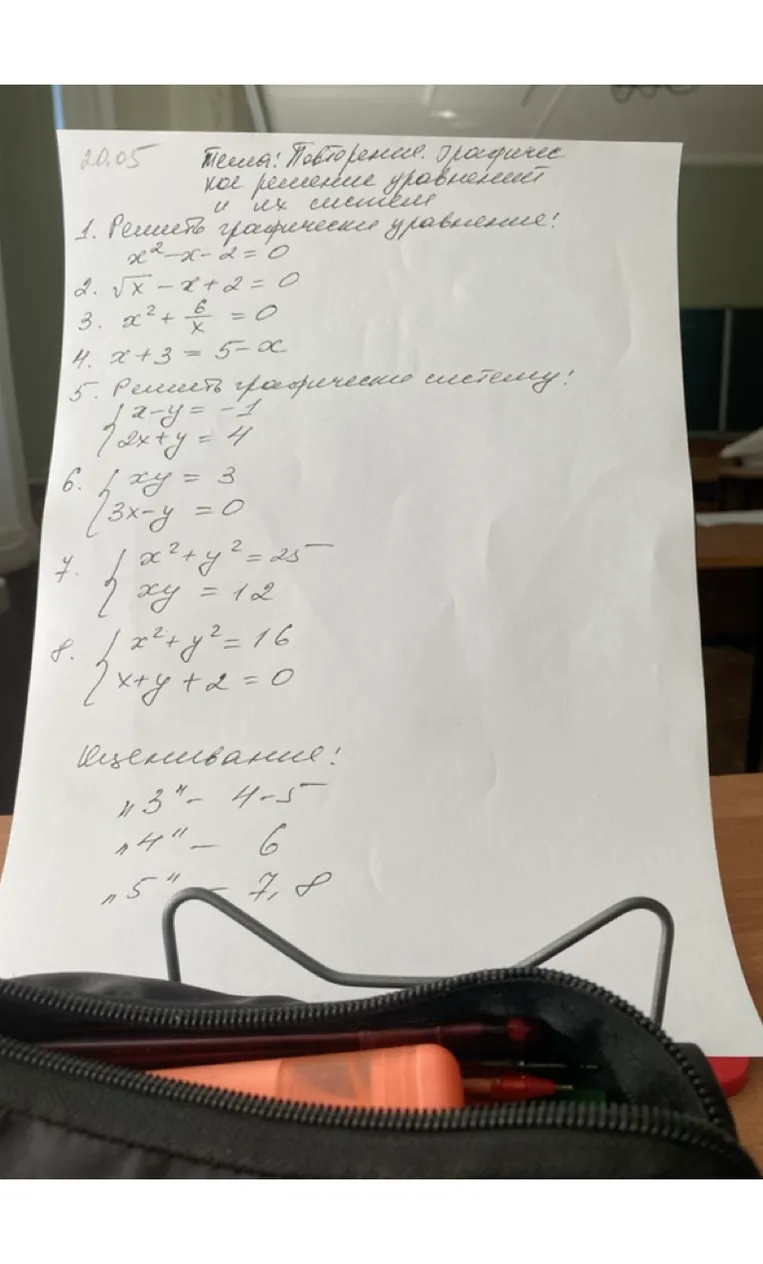 20.05 Тема: Повторение. Графичес
кое решение уравнений
и их систем
1. Решить графически уравнение:
x² - x - 2 = 0
2. √x - x + 2 = 0
3. x² + 6/x = 0
4. x + 3 = 5 - x
5. Решить графически систему:
{ x - y = -1
2x + y = 4
6. { xy = 3
3x - y = 0
7. { x² + y² = 25
xy = 12
8. { x² + y² = 16
x + y + 2 = 0
Оценивание:
„3" - 4-5
„4" - 6
„5" - 7, 8